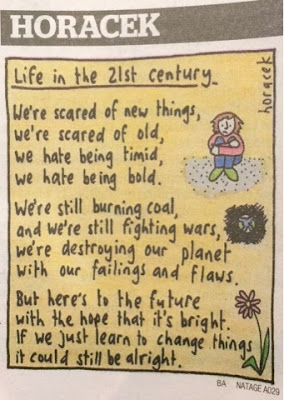 HORACEK
Life in the 21st century
horacek
We're scared of new things,
we're scared of old,
we hate being timid,
we hate being bold.
We're still burning coal,
and we're still fighting wars,
we're destroying our planet
with our failings and flaws.
But here's to the future
with the hope that it's bright.
If we just learn to change things
it could still be alright.
BA NATAGE A029